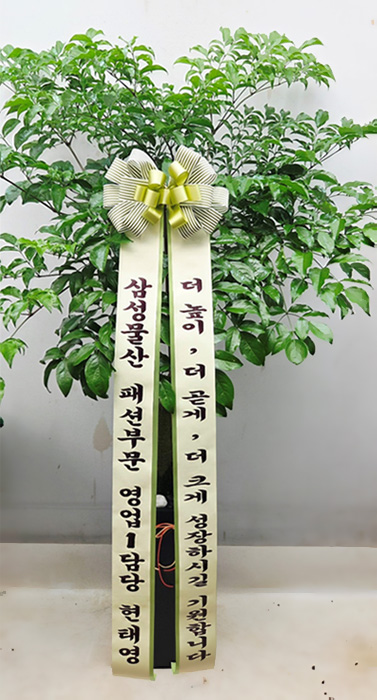 삼성물산 패션부문 영업1담당 현태영
더 높이, 더 곧게, 더 크게 성장하시길 기원합니다